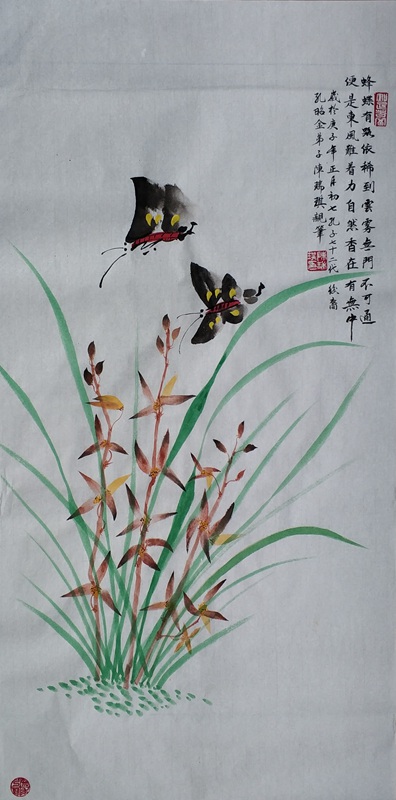 蜂蝶有路依稀到雲霧無門不可通
便是東風難着力自然香在有無中
歲於庚子年正月初七孔子七十二代後裔
孔昭金弟子陳瑞琪親筆